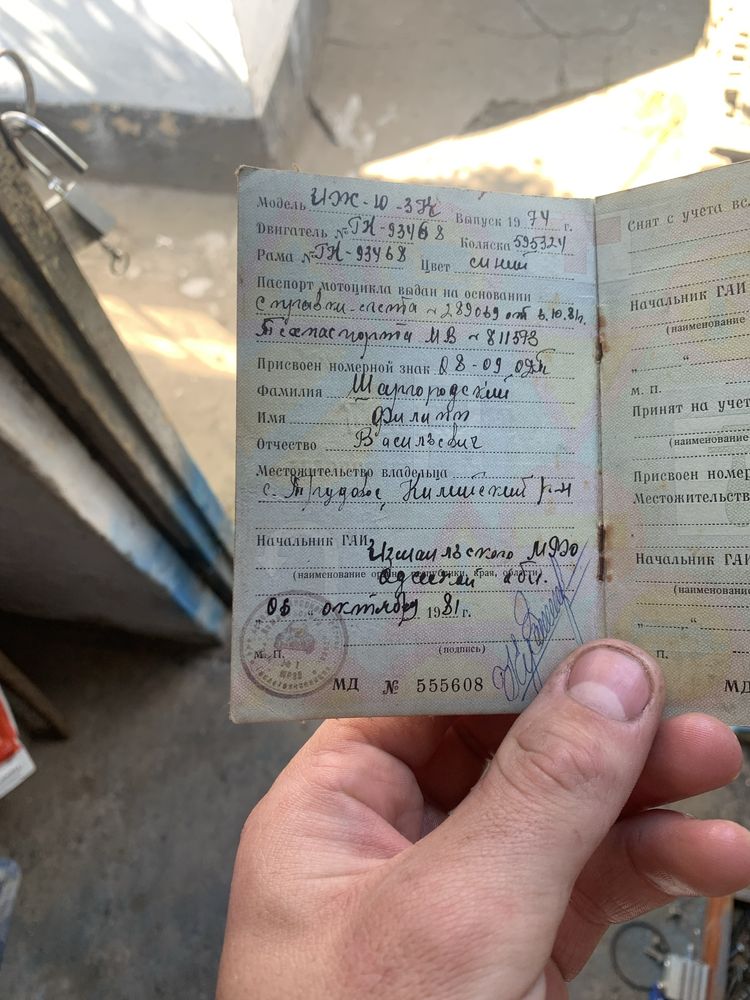 Модель ИЖ-Ю-3К Выпуск 1974 г.
Двигатель № ГН-93468 Коляска 595324
Рама № ГН-93468 Цвет синий
Паспорт мотоцикла выдан на основании
Справки-счета № 289069 от 6.10.81г.
Техпаспорта МВ № 811593
Присвоен номерной знак 08-09 ОДБ
Фамилия Шаргородский
Имя Филипп
Отчество Васильевич
Местожительство владельца
с. Трудовое, Килийский р-н
Начальник ГАИ Измаильского МРЭО
(наименование органа, республики, края, области)
Одесской обл.
„06" октября 1981 г.
М. П. (подпись)
МД № 555608
Снят с учета
Начальник ГАИ
(наименование
„ "
М. П.
Принят на учет
(наименование
Присвоен номер
Местожительств
Начальник ГАИ
(наименование
„ "
П.
МД